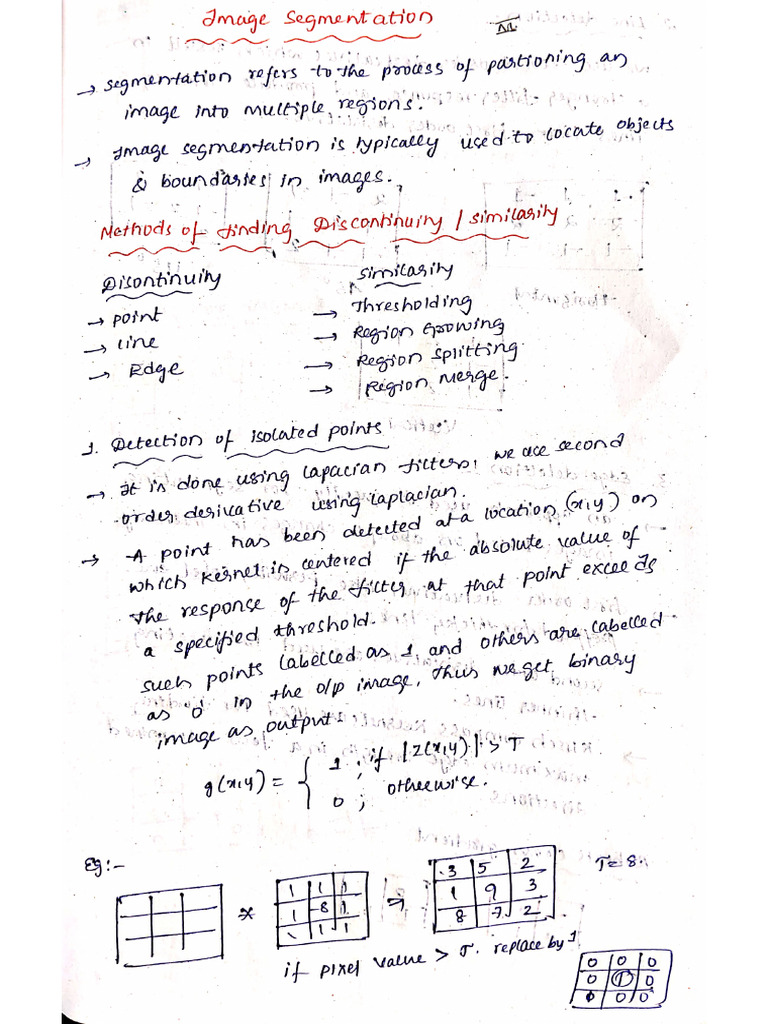 Image Segmentation
→ Segmentation refers to the process of partioning an
image into multiple regions.
→ Image segmentation is typically used to locate objects
& boundaries in images.
Methods of finding Discontinuity / similarity
Discontinuity
→ point
→ Line
→ Edge
Similarity
→ Thresholding
→ Region Growing
→ Region Splitting
→ Region Merge.
1. Detection of isolated points
→ It is done using Lapacian filters, we use second
order derivative using laplacian.
→ A point has been detected at a location (x,y) on
which kernel is centered if the absolute value of
the response of the filter at that point exceeds
a specified threshold.
such points labelled as 1 and others are labelled
as '0' in the o/p image, thus we get binary
image as output.
g(x,y) = { 1 ; if |Z(x,y)| > T
0 ; otherwise.
Eg:-
*
1 1 1
1 -8 1
1 1 1
⇒
3 5 2
1 9 3
8 7 2
T = 8.
if pixel value > T. replace by 1
0 0 0
0 1 0
0 0 0